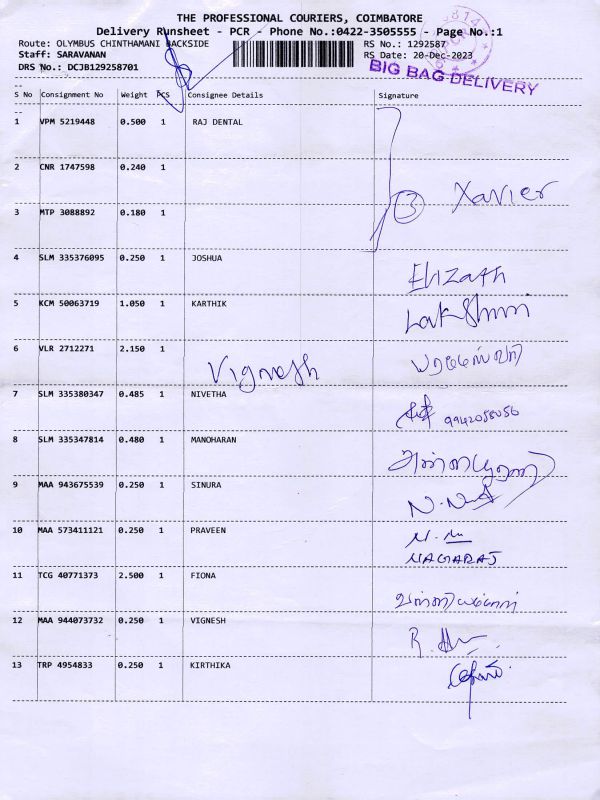 THE PROFESSIONAL COURIERS, COIMBATORE
Delivery Runsheet - PCR - Phone No.:0422-3505555 - Page No.:1
Route: OLYMBUS CHINTHAMANI BACKSIDE RS No.: 1292587
Staff: SARAVANAN RS Date: 20-Dec-2023
DRS No.: DCJB129258701
BIG BAG DELIVERY
S No Consignment No Weight PCS Consignee Details Signature
1 VPM 5219448 0.500 1 RAJ DENTAL
2 CNR 1747598 0.240 1
3 Xavier
3 MTP 3088892 0.180 1
4 SLM 335376095 0.250 1 JOSHUA
Elizath
5 KCM 50063719 1.050 1 KARTHIK
Lakshmi
6 VLR 2712271 2.150 1
Vignesh
7 SLM 335380347 0.485 1 NIVETHA
9942058056
8 SLM 335347814 0.480 1 MANOHARAN
9 MAA 943675539 0.250 1 SINURA
10 MAA 573411121 0.250 1 PRAVEEN
NAGARAJ
11 TCG 40771373 2.500 1 FIONA
12 MAA 944073732 0.250 1 VIGNESH
13 TRP 4954833 0.250 1 KIRTHIKA